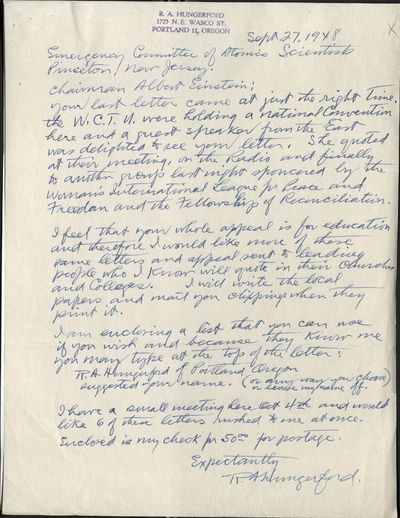 R. A. HUNGERFORD
1725 N. E. WASCO ST.
PORTLAND 12, OREGON
Sept. 27, 1948
Emergency Committee of Atomic Scientists
Princeton, New Jersey.
Chairman Albert Einstein:
Your last letter came at just the right time.
the W.C.T.U. were holding a national Convention
here and a guest speaker from the East
was delighted to see your letter. She quoted
at their meeting, on the Radio and finally
to another group last night sponsored by the
Woman's International League for Peace and
Freedom and the Fellowship of Reconciliation.
I feel that your whole appeal is for education
and therefore I would like more of these
same letters and appeal sent to leading
people who I know will quote in their Churches
and Colleges. I will write the local
papers and mail you clippings when they
print it.
I am enclosing a list that you can use
if you wish and because they know me
you may type at the top of the letter:
R.A. Hungerford of Portland, Oregon
suggested your name. (or any way you choose)
or leave my name off.
I have a small meeting here Oct 4th and would
like 6 of these letters rushed to me at once.
Enclosed is my check for 50¢ for postage.
Expectantly
R.A. Hungerford.